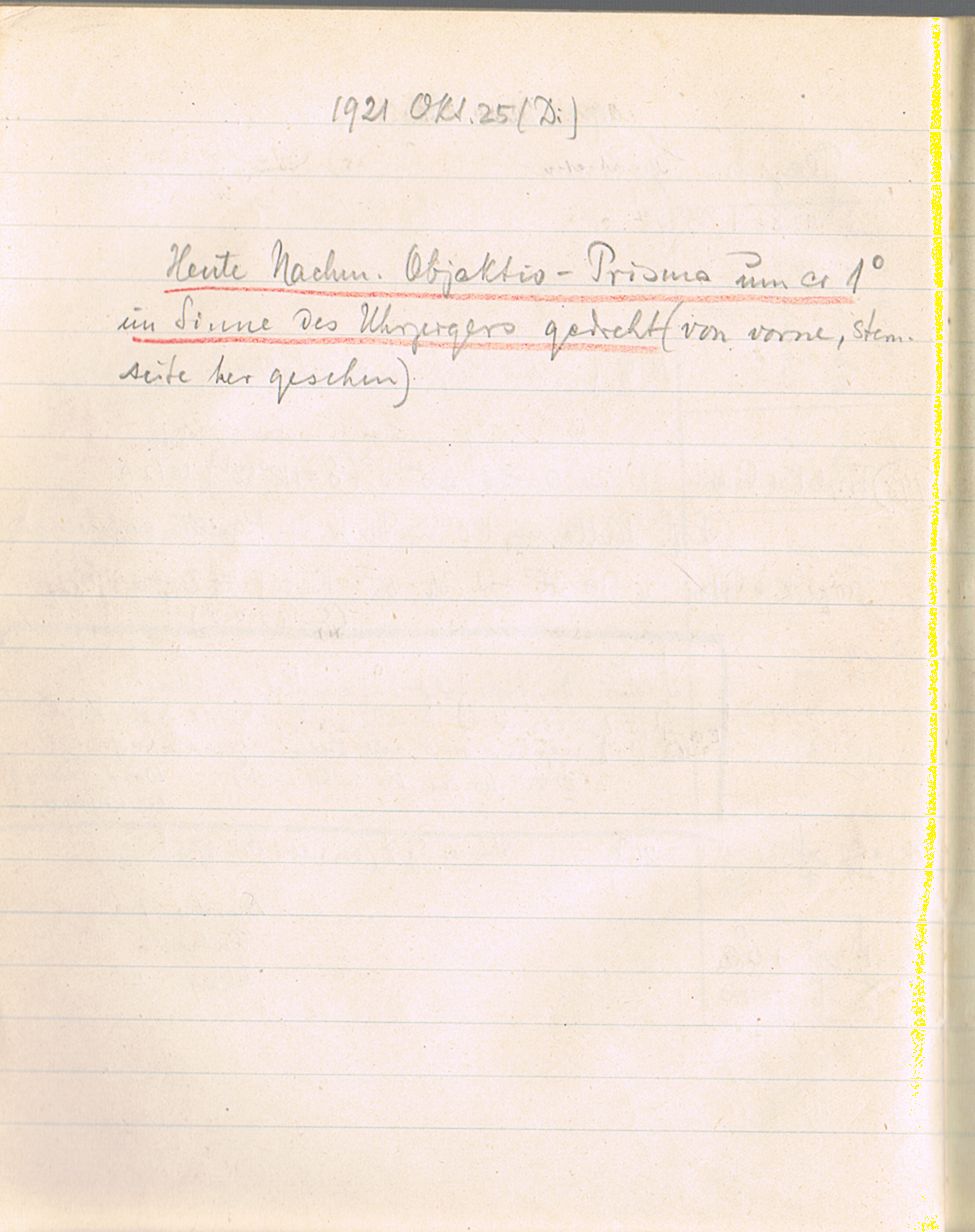 1921 Okt. 25 (Di)
Heute Nachm. Objektiv-Prisma um ca 1°
im Sinne des Uhrzeigers gedreht (von vorne, Stern-
seite her gesehen)